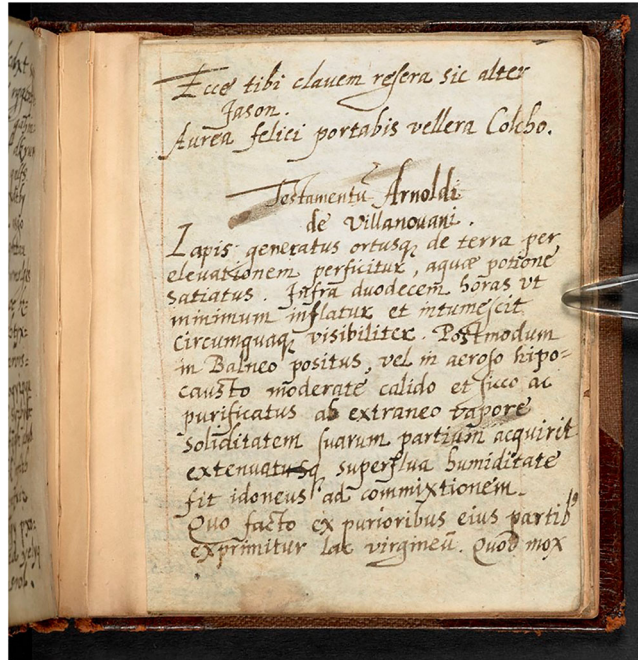 Ecce tibi clauem resera sic alter
Jason.
Aurea felici portabis vellera Colcho.
Testamentū Arnoldi
de Villanouani.
Lapis generatus ortusq̨ de terra per
eleuationem perficitur, aquæ potione
satiatus. Infra duodecem horas vt
minimum inflatur et intumescit
circumquaq̨ visibiliter. Postmodum
in Balneo positus, vel in aeroso hipo=
causto moderate calido et sicco ac
purificatus ab extraneo vapore
soliditatem suarum partium acquirit
extenuatusq̨ superflua humiditate
fit idoneus ad commixtionem.
Quo facto ex purioribus eius partib⁹
exprimitur lac virgineū. Quod mox